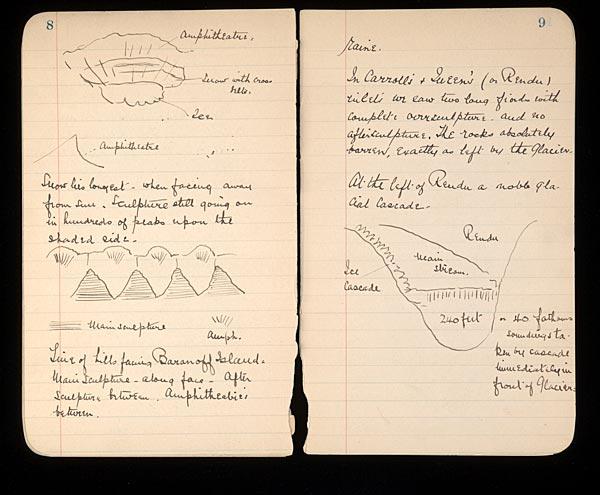 8
Amphitheatre.
Snow with cross
hills.
Ice
Amphitheatre
Snow lies longest - when facing away
from sun. Sculpture still going on
in hundreds of peaks upon the
shaded side.
Main sculpture
Amph.
Line of hills facing Baranoff Island.
Main sculpture - along face - After
sculpture between. Amphitheatres
between.
9
raine.
In Carrolls & Queen's (or Rendu)
inlets we saw two long fiords with
complete oversculpture and no
aftersculpture. The rocks absolutely
barren, exactly as left by the Glacier.
At the left of Rendu a noble gla-
cial cascade.
Rendu
Main
stream.
Ice
Cascade
240 feet
or 40 fathoms
soundings ta-
ken by cascade
immediately in
front of Glacier.